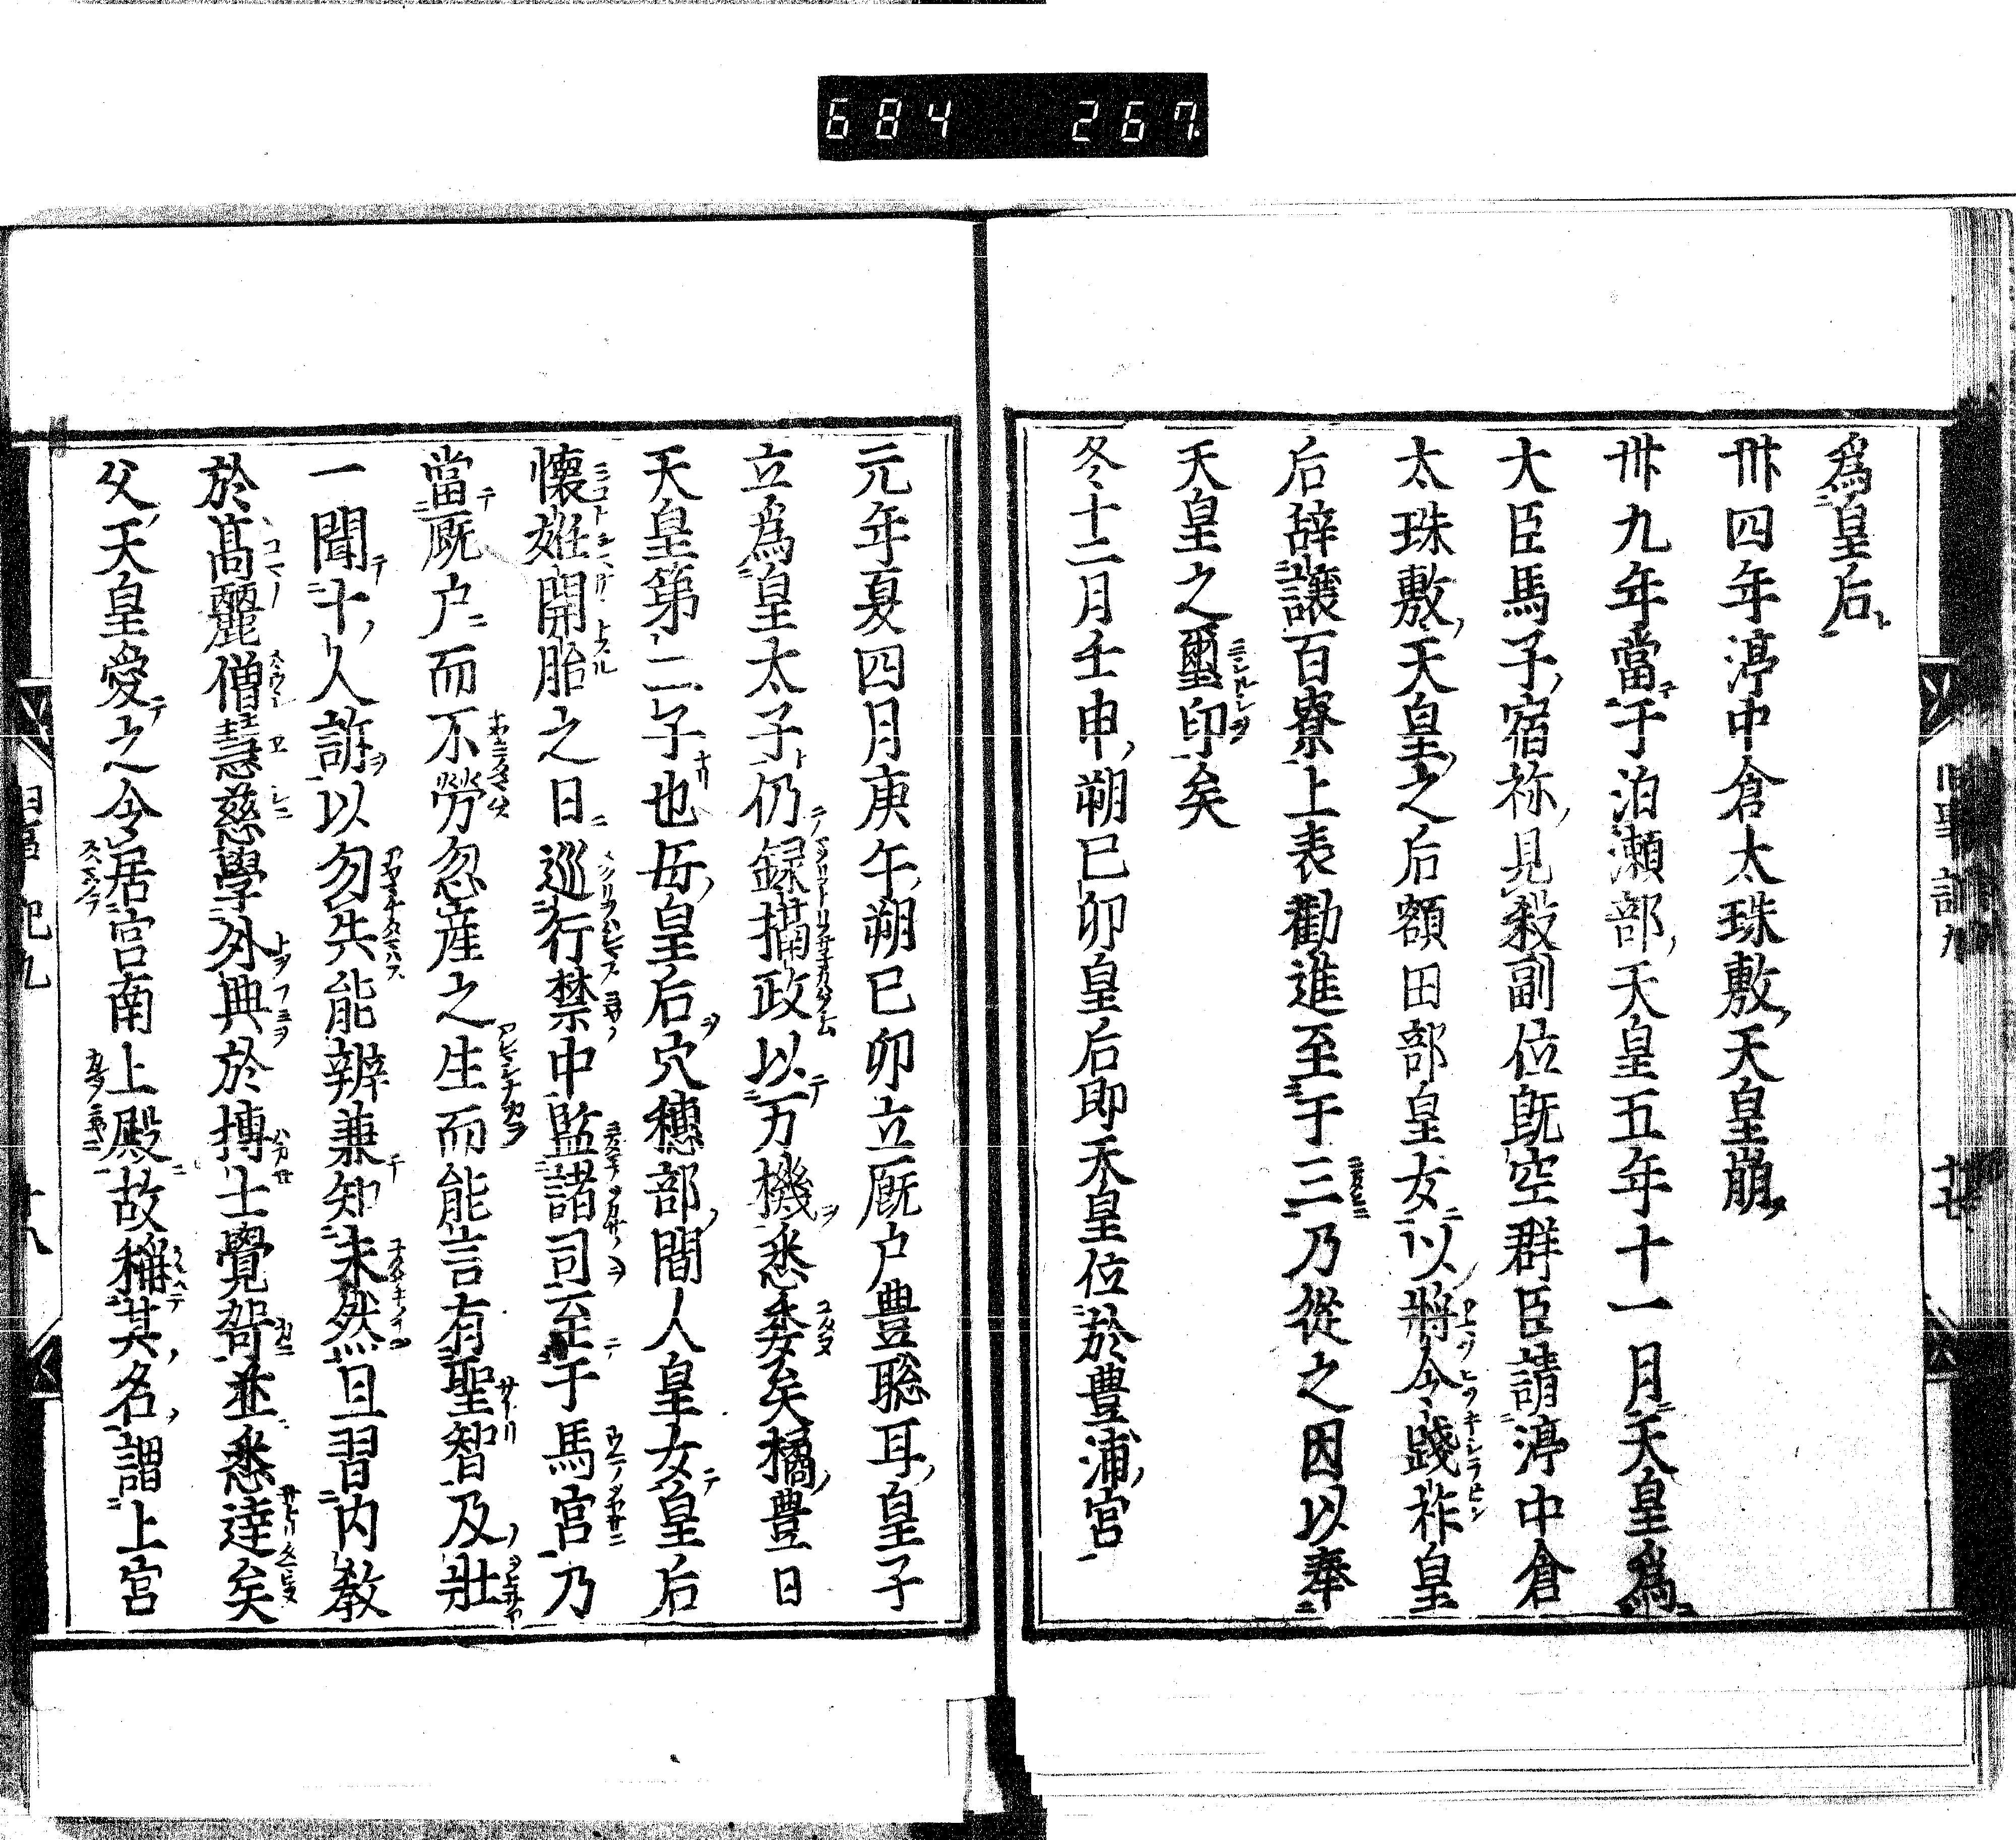 684 267
爲皇后
卅四年渟中倉太珠敷天皇崩
卅九年當于泊瀬部天皇五年十一月天皇爲
大臣馬子宿祢見殺副位既空群臣請渟中倉
太珠敷天皇之后額田部皇女以將令踐祚皇
后辞讓百寮上表勸進至于三乃從之因以奉
天皇之璽印矣
冬十二月壬申朔己卯皇后即天皇位於豊浦宮
元年夏四月庚午朔己卯立厩户豊聡耳皇子
立爲皇太子仍録攝政以万機悉委矣橘豊日
天皇第二子也母皇后穴穗部間人皇女皇后
懐姙開胎之日巡行禁中監諸司至于馬宮乃
當厩户而不勞忽産之生而能言有聖智及壯
一聞十人訴以勿失能辨兼知未然且習内教
於髙麗僧慧慈學外典於博士覺哿並悉逹矣
父天皇愛之令居宮南上殿故稱其名謂上宮